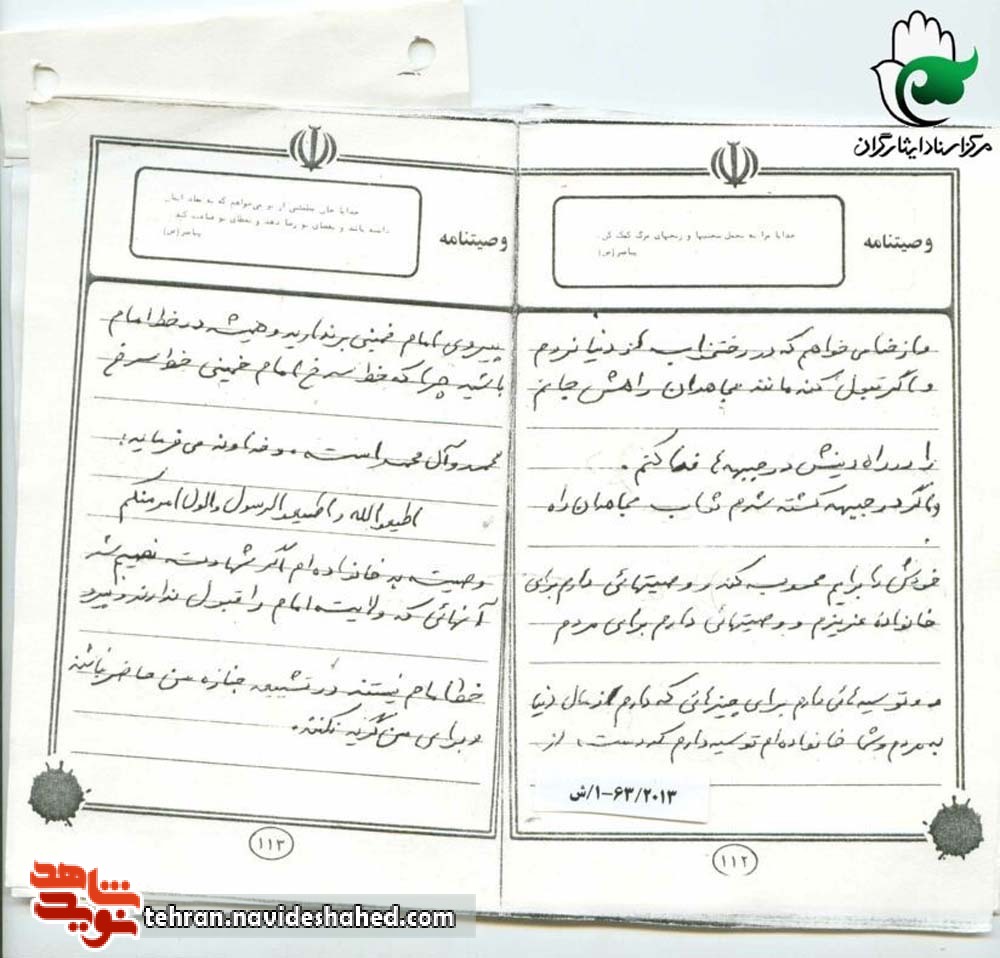 مرکز اسناد ایثارگران
وصیتنامه
خدایا مرا به تحمل سختیها و رنجهای مرگ کمک کن.
پیامبر (ص)
و از خدا می خواهم که در رختخواب از دنیا نروم
و اگر قبول کند مانند مجاهدان راهش جانم
را در راه دینش در جبهه ها فدا کنم .
و اگر در جبهه کشته شدم ثواب مجاهدان راه
خودش را برایم محسوب کند و وصیتهائی دارم برای
خانوادهٔ عزیزم و وصیتهائی دارم برای مردم
و توسیه هائی دارم برای چیزهائی که دارم از مال دنیا
به مردم و شما خانواده ام توسیه دارم که دست از
۱/۶۳-۲۰۱۳/ش
۱۱۲
وصیتنامه
خدایا جان مطمئنی از تو می‌خواهم که به لقاء ایمان
داشته باشد و بقضای تو رضا دهد و بعطای تو قناعت کند
پیامبر (ص)
پیروی امام خمینی برندارید و همیشه در خط امام
باشید چرا که خط سرخ امام خمینی خط سرخ
محمد و آل محمد است . و خداوند می فرماید :
اطیعوالله و اطیعوالرسول والول امر منکم
وصیت به خانواده ام اگر شهادت نصیبم شد
آنهائی که ولایت امام را قبول ندارند و پیرو
خط امام نیستند در تشییع جنازه من حاضر نباشند
و برای من گریه نکنند .
۱۱۳
نوید شاهد
tehran.navideshahed.com